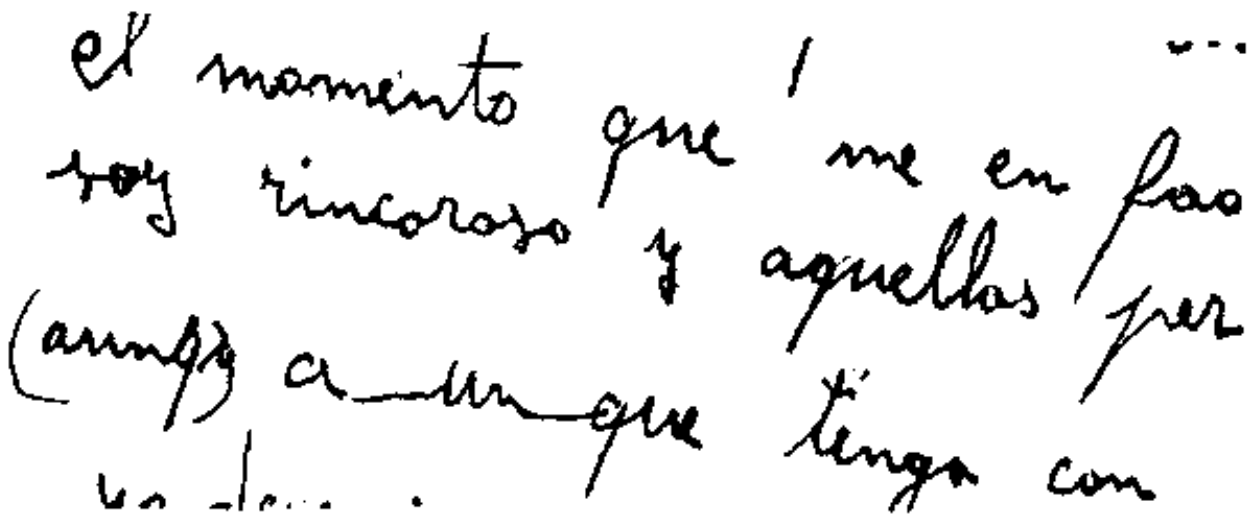 el momento que me en fao
soy rincoroso y aquellas per
a un que tenga con